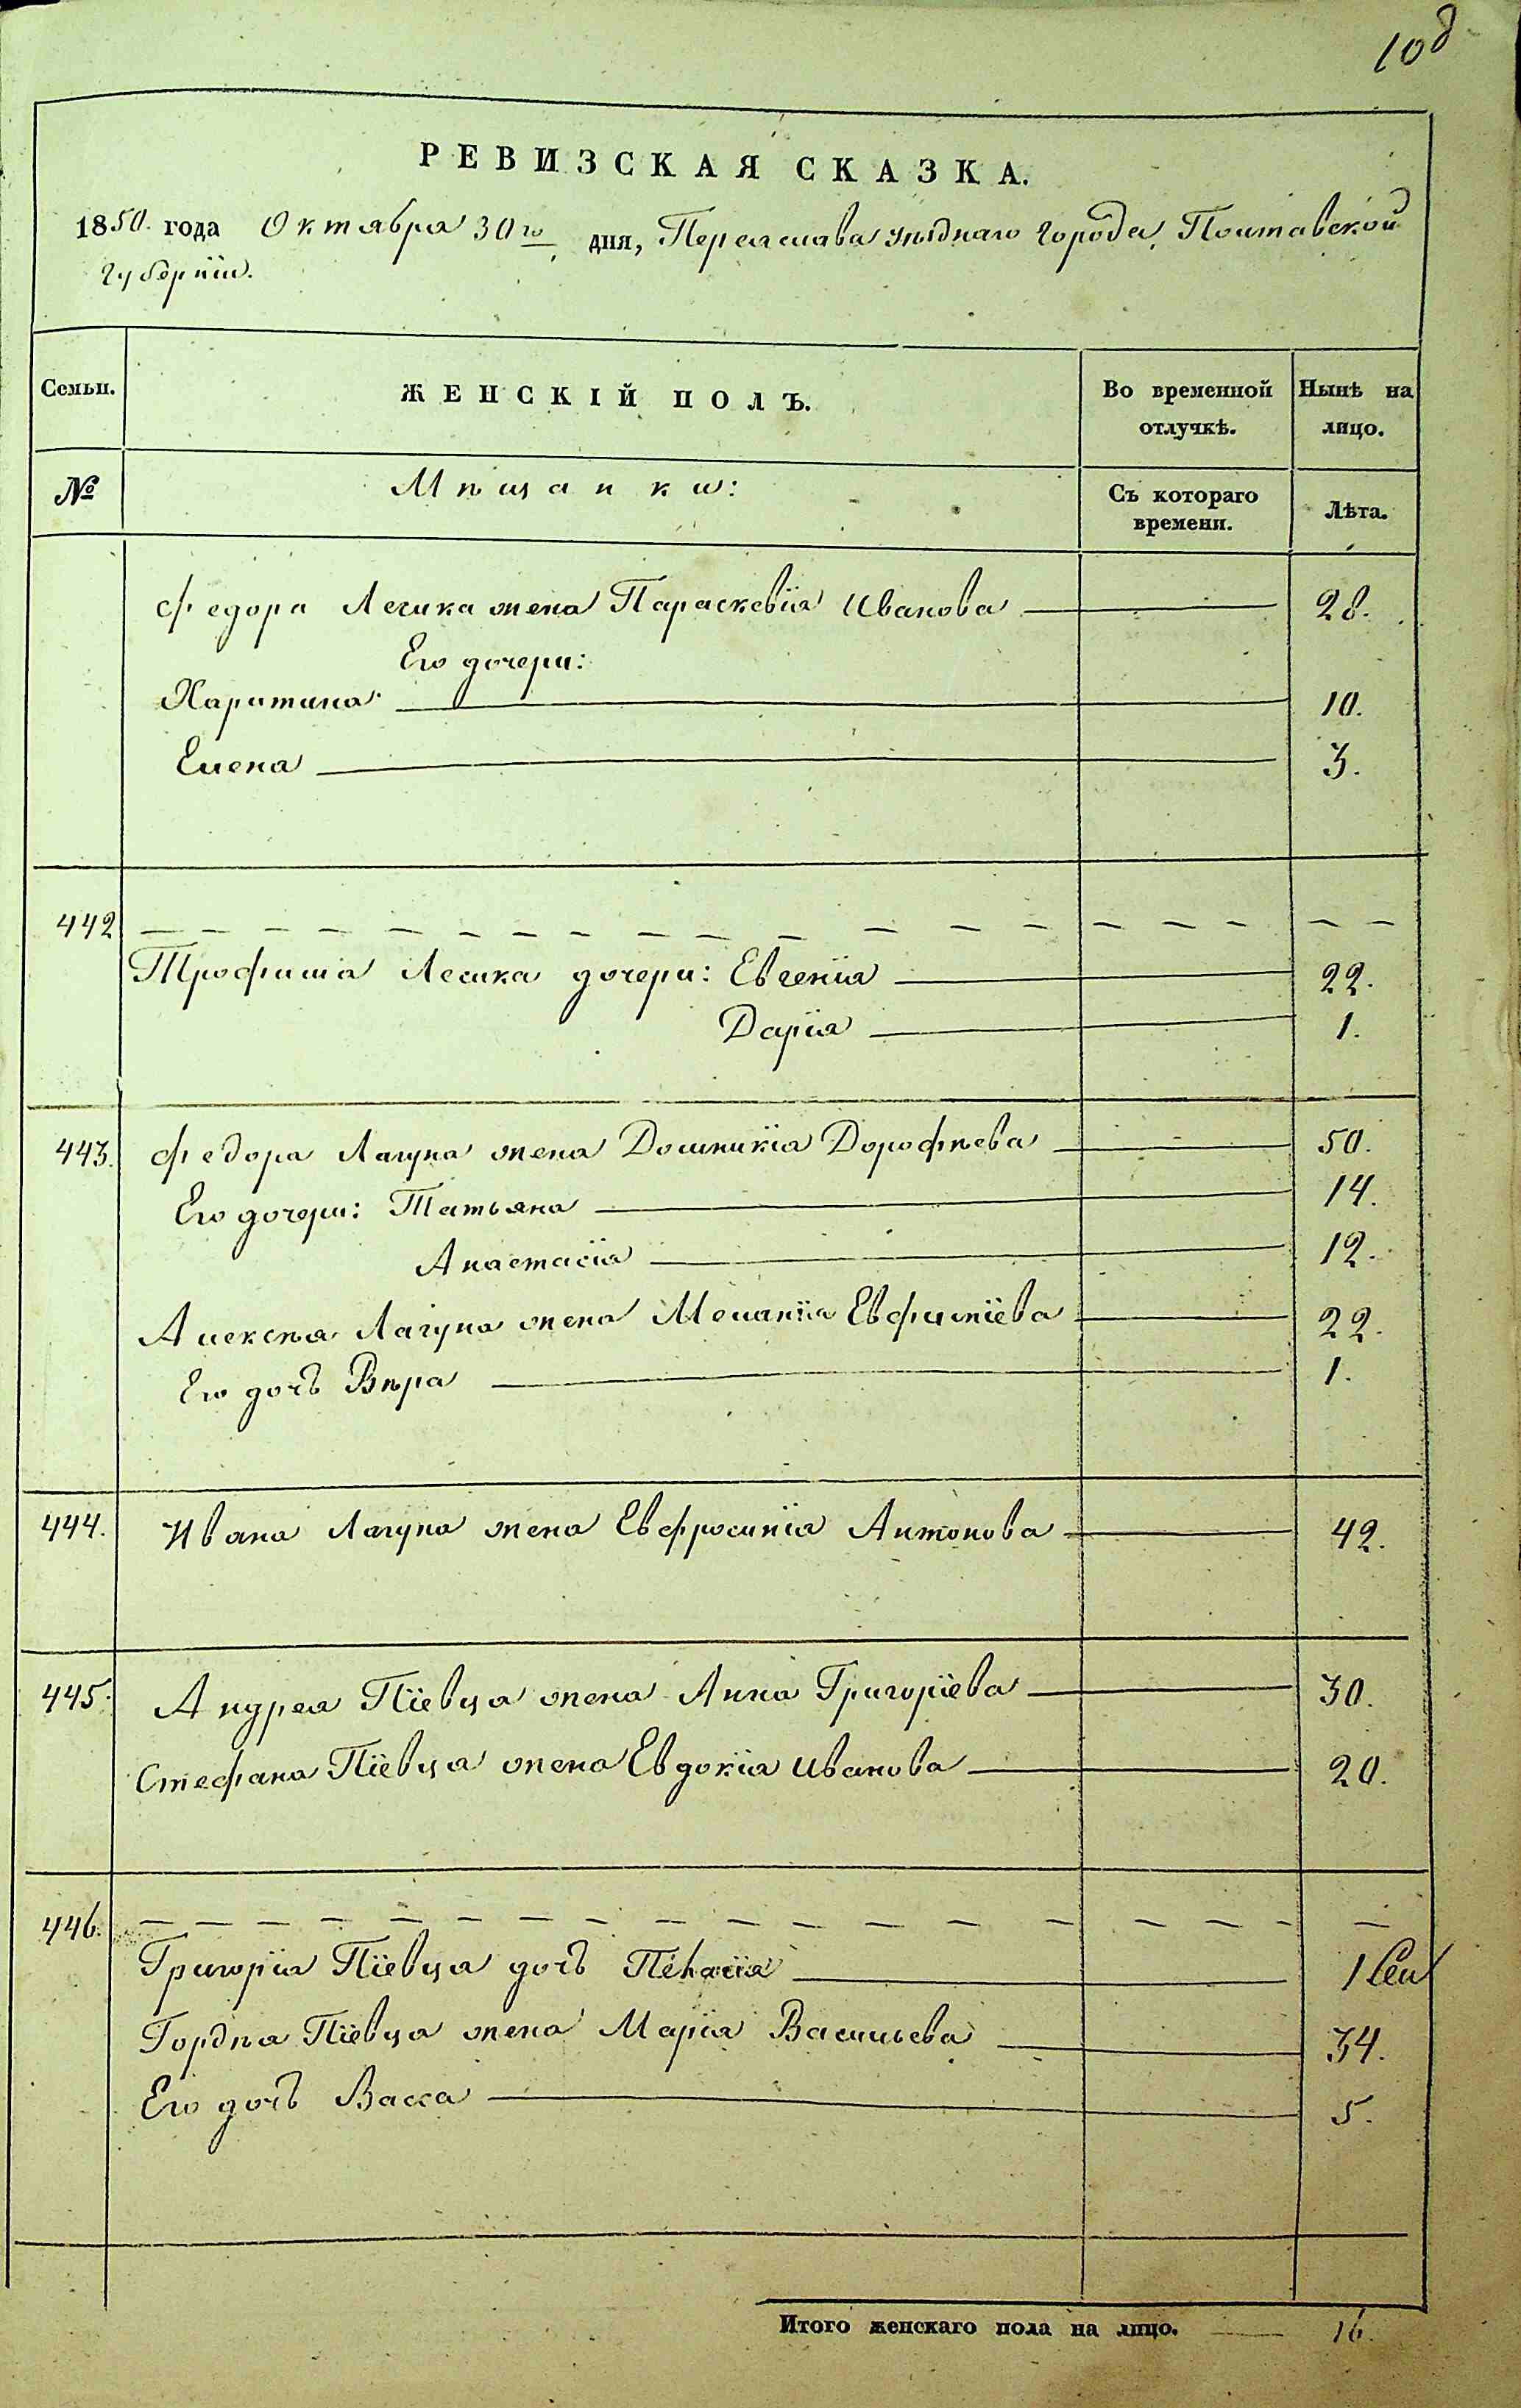 108
РЕВИЗСКАЯ СКАЗКА.
1850. года Октября 30го дня, Переяслава уѣзднаго города, Полтавской
Губерніи.
Семьи. ЖЕНСКІЙ ПОЛЪ. Во временной отлучкѣ. Нынѣ на лицо.
№ Мѣщанки: Съ котораго времени. Лѣта.
Федора Лелика жена Параскевія Иванова 28.
Его дочери:
Харитина 10.
Елена 3.
442
Трофима Лелика дочери: Евгенія 22.
Дарія 1.
443. Федора Лагуна жена Домникія Дорофѣева 50.
Его дочери: Татьяна 14.
Анастасія 12.
Алексѣя Лагуна жена Меланія Евфиміева 22.
Его дочь Вѣра 1.
444. Ивана Лагуна жена Евфросинія Антонова 42.
445. Андрея Піевца жена Анна Григоріева 30.
Стефана Піевца жена Евдокія Иванова 20.
446.
Григорія Піевца дочь 1
Гордѣа Піевца жена Марія Васильева 34.
Его дочь Васса 5.
Итого женскаго пола на лицо. 16.